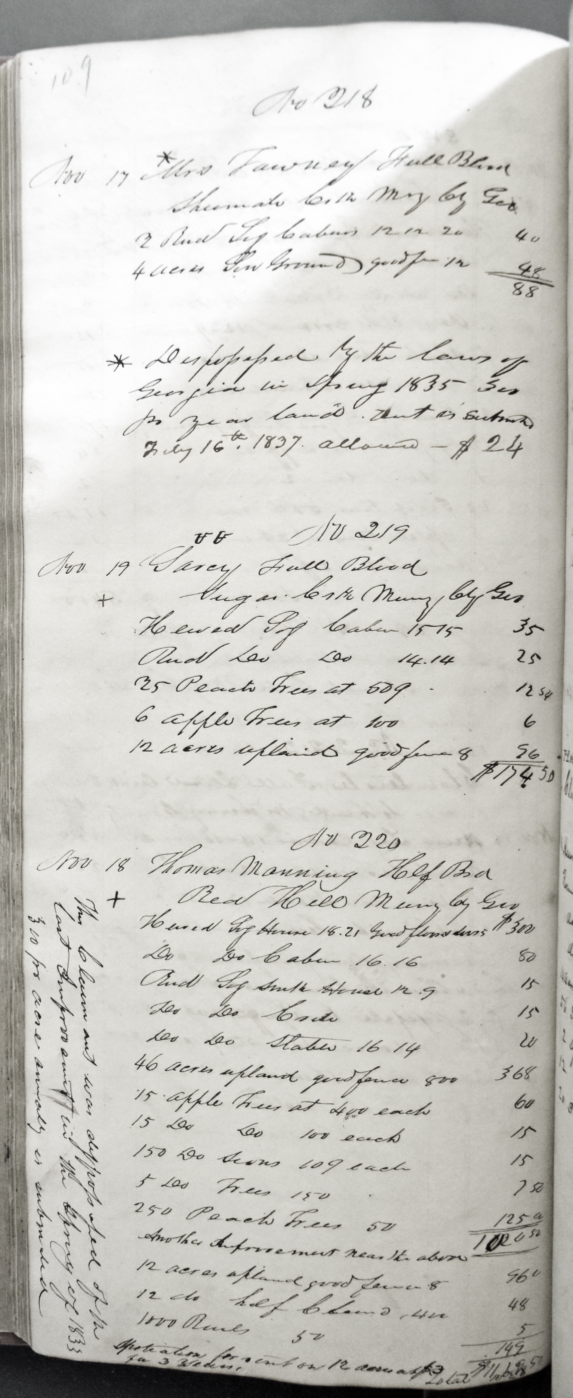 109
No 218
Nov 17 * Mrs Tawney Full Blood
Shumate Crk Mry Cty Geo
2 Rud Log Cabens 12 12 20 40
4 acres Low Ground good fen 12 48
88
* Dispossessed by the laws of
Georgia in Spring 1835
pr year land rent is
July 16th 1837. allowed — $24
No 219
Nov 19 Darcy Full Blood
+ Sugar Crk Murry Cty Geo
Hewed Log Caben 15 15 35
Rud Do Do 14.14 25
25 Peach Trees at 12 50
6 apple Trees at 100 6
12 acres upland good fence 8 96
$174 50
No 220
Nov 18 Thomas Manning Hlf Brd
+ Red Hill Murry Cty Geo
Hewed Log House 18.21 Good floor doors $300
Do Do Caben 16.16 80
Rud Log Smk House 12.9 15
Do Do Crib 15
Do Do Stable 16 14 20
46 acres upland good fence 800 368
15 apple Trees at 400 each 60
15 Do Do 100 each 15
150 Do each 15
5 Do Trees 150 7 50
250 Peach Trees 50 125
Another Improvement near the above 1020 50
12 acres upland good fence 8 96
12 do half Cleared 400 48
1000 Rails 50 5
149
for rent on 12 acres at $3
for 3 years. Total
This Claimant was dispossessed of the
last Improvement in the Spring of 1833
$3.00 pr acre annualy is submitted